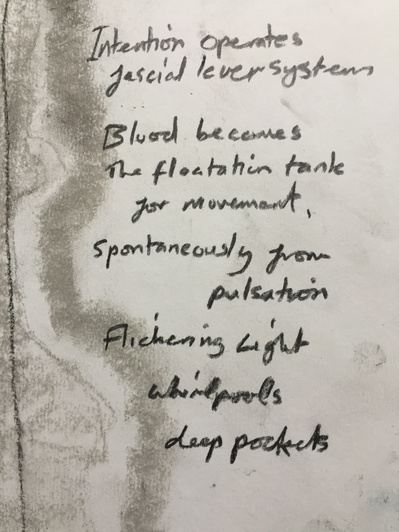 Intention operates
fascial lever systems
Blood becomes
The floatation tank
for movement,
spontaneously from
pulsation
Flickering Light
whirlpools
deep pockets